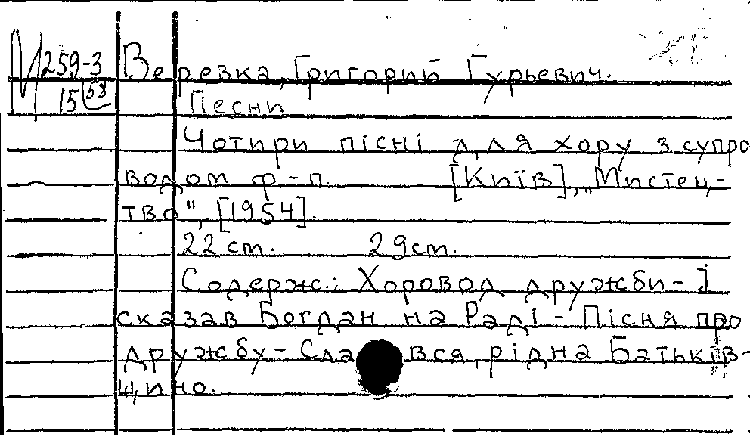 М 259-3 Веревка, Григорий Гурьевич.
15/58 Песни
Чотири пісні для хору з супро
водом ф-п. [Київ], „Мистец-
тво", [1954].
22 ст. 29 ст.
Содерж.: Хоровод дружби - І
сказав Богдан на Раді - Пісня про
дружбу - вся, рідна Батьків-
щино.